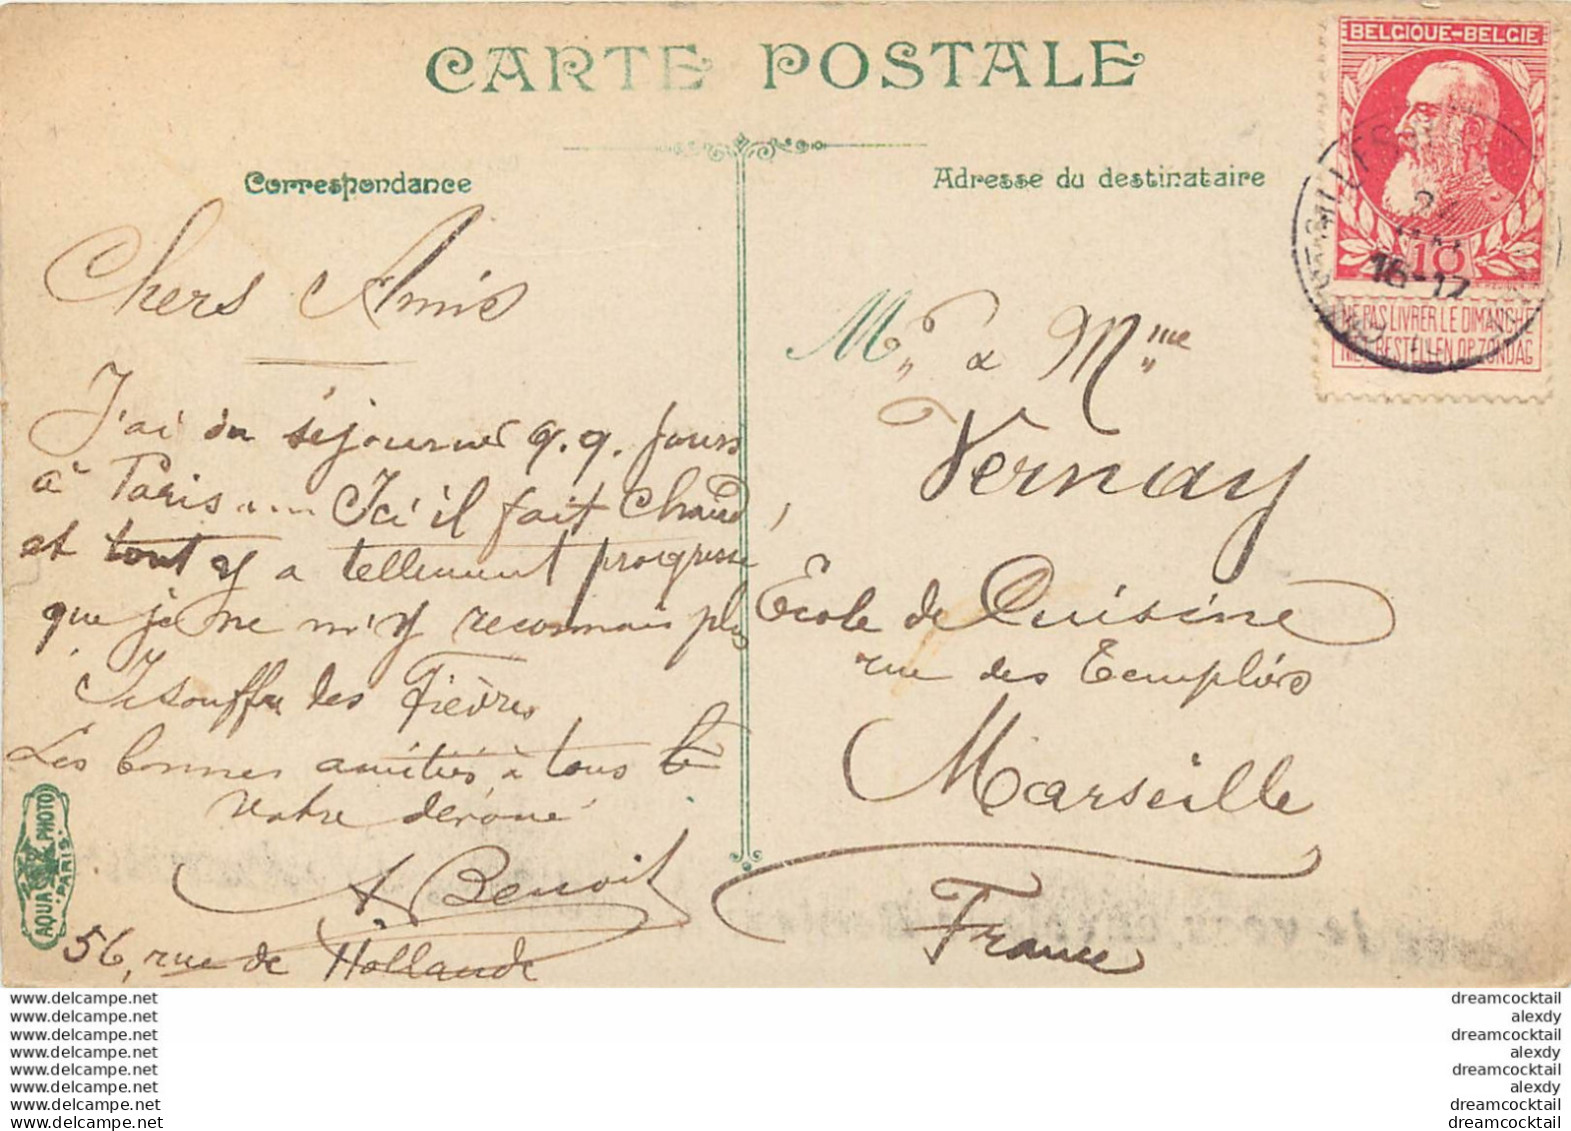 CARTE POSTALE
BELGIQUE-BELGIE
10
16-17
NE PAS LIVRER LE DIMANCHE
NIET BESTELLEN OP ZONDAG
Correspondance
Adresse du destinataire
Chers Amis
J'ai du séjourner q.q. jours
à Paris .... Ici il fait chaud,
et tout y a tellement progressé
que je ne m'y reconnais plus
Je souffre des fièvres
Les bonnes amitiés à tous
Votre dévoué
A. Benoit
56, rue de Hollande
Mr & Mme
Vernay
Ecole de Cuisine
rue des Templiers
Marseille
France
AQUA PHOTO
PARIS
www.delcampe.net
www.delcampe.net
www.delcampe.net
www.delcampe.net
www.delcampe.net
www.delcampe.net
www.delcampe.net
www.delcampe.net
dreamcocktail
alexdy
dreamcocktail
alexdy
dreamcocktail
alexdy
dreamcocktail
dreamcocktail